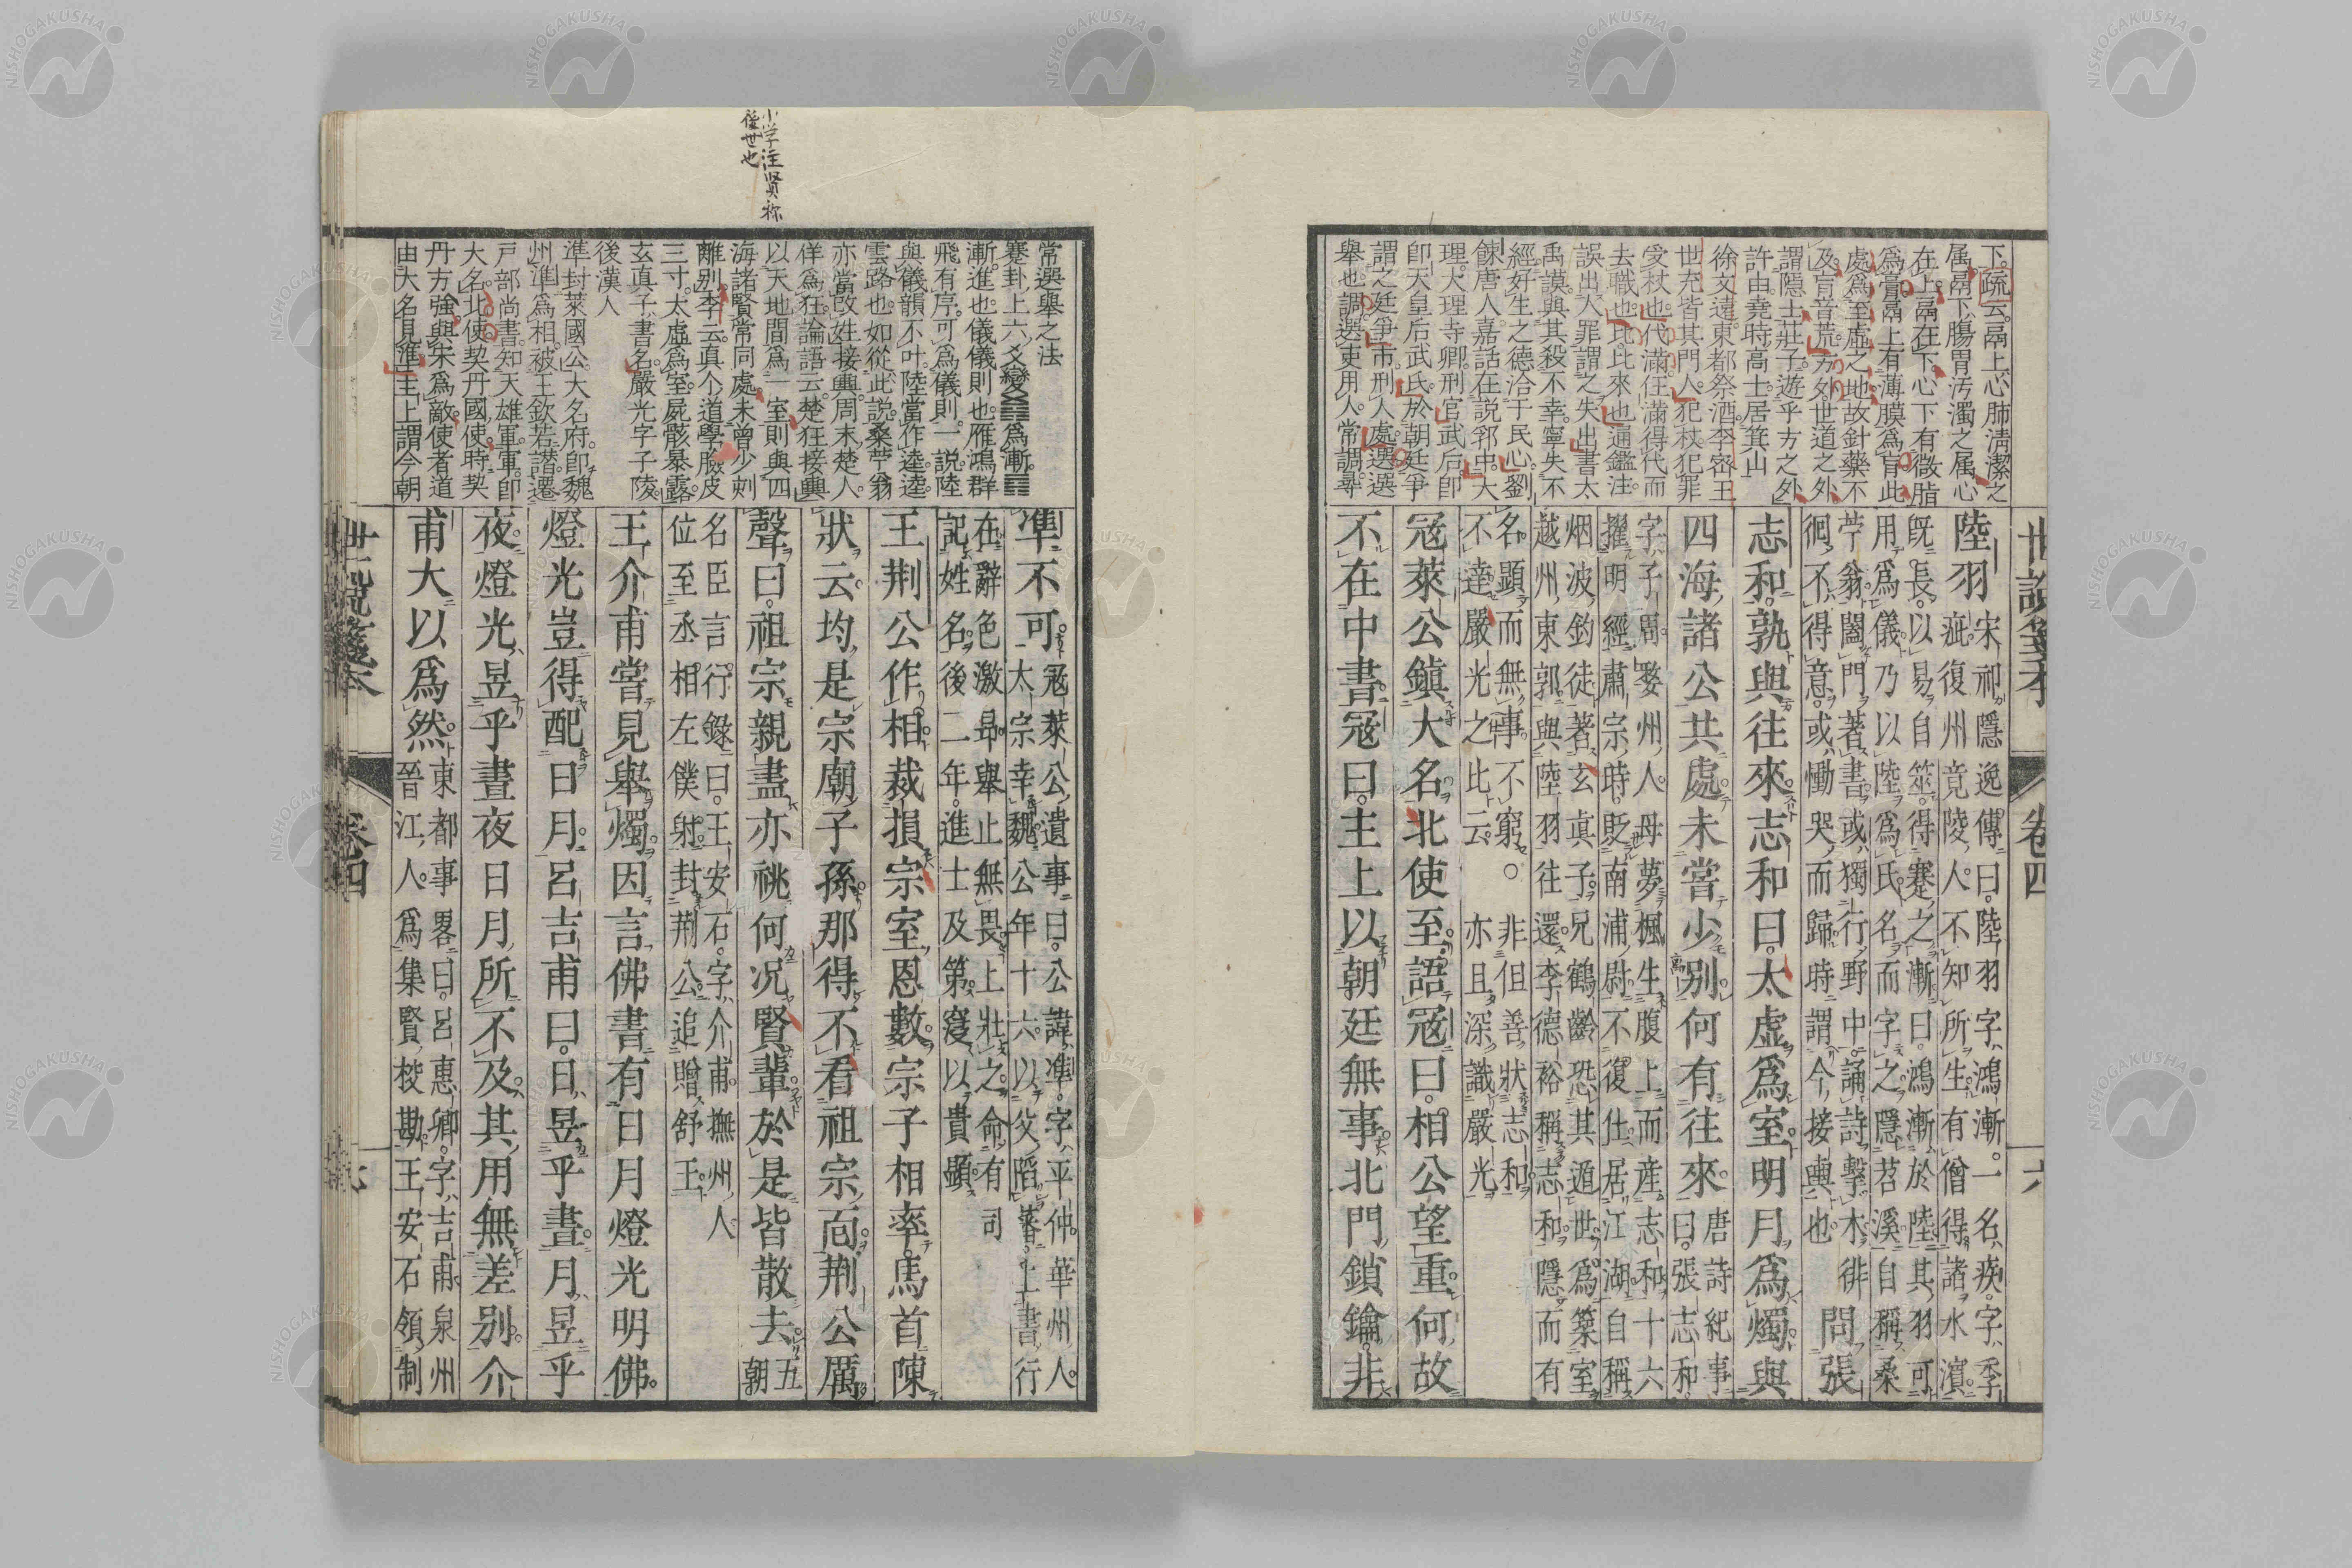 下。疏云。鬲上心肺清潔之
属。鬲下腸胃汚濁之属。心
在上。鬲在下。心下有微脂
爲膏。鬲上有薄膜爲肓。此
處爲至虚之地。故針藥不
及。肓音荒。方外世道之外。
謂隱士。莊子。遊乎方之外
許由。堯時高士。居箕山
徐文遠。東都祭酒。李密王
世充皆其門人。犯杖。犯罪
受杖也。代滿。任滿得代而
去職也。比。比來也。通鑑注。
誤出人罪。謂之失出。書大
禹謨。與其殺不幸。寧失不
經。好生之德。洽于民心。劉
餗。唐人。嘉話在説郛中。大
理。大理寺卿。刑官。武后即
即天皇后武氏。於朝廷爭
謂之廷爭。市。刑人處。選選
舉也。調選。吏用人。常調。尋
陸羽 宋祁隱逸傳曰。陸羽字鴻漸。一名疾。字季
疵。復州竟陵人。不知所生。有僧得諸水濱。
既長。以易自筮。得蹇之漸。曰。鴻漸於陸。其羽可
用爲儀。乃以陸爲氏。名而字之。隱苕溪。自稱桑
苧翁。闔門著書。或獨行野中。誦詩擊木。徘
徊不得意。或慟哭而歸。時謂今接輿也 問張
志和。孰與往來。志和曰。太虚爲室。明月爲燭。與
四海諸公共處。未嘗少別。何有往來。 唐詩紀事
曰。張志和。
字子同。婺州人。母夢楓生腹上而産志和。十六
擢明經。肅宗時。貶南浦尉。不復仕。居江湖。自稱
烟波釣徒。著玄眞子。兄鶴齡恐其遁世。爲築室
越州東郭。與陸羽往還。李德裕稱志和。隱而有
名。顯而無事。不窮。○非但善狀志和。
不達。嚴光之比云。亦且深識嚴光
寇萊公鎭大名。北使至。語寇曰。相公望重。何故
不在中書。冦曰。主上以朝廷無事。北門鎖鑰。非
世說箋本 卷四 六
小学注賢称
俊世也
常選舉之法
蹇卦上六。爻變䷦爲漸。䷴
漸進也。儀儀則也。雁鴻群
飛有序。可爲儀則。一説。陸
與儀韻不叶。陸當作逵。逵
雲路也。如從此説。桑苧翁
亦當改姓。接輿。周末楚人。
佯爲狂。論語云。楚狂接輿
以天地間爲一室。則與四
海諸賢常同處。未曾少刺
離別。李云。真人道學臉皮
三寸。太虛爲室。屍骸暴露。
玄真子書名。嚴光字子陵。
後漢人
準封萊國公。大名府。即魏
州。準爲相。被王欽若譖。遷
戸部尚書。知天雄軍。軍即
大名。北使。契丹國使。時契
丹方強。與宋爲敵。使者道
由大名見準。主上謂今朝
準不可。 冦萊公遺事曰。公諱準。字平仲。華州人。
太宗幸魏。公年十六。以父陷蕃。上書行
在。辭色激昻。舉止無畏。上壯之。命有司
記姓名。後二年。進士及第。寖以貴顯。
王荆公作相。裁損宗室恩數。宗子相率馬首陳
狀云。均是宗廟子孫。那得不看祖宗面。荆公厲
聲曰。祖宗親盡亦祧。何况賢輩。於是皆散去。 五朝
名臣言行錄曰。王安石。字介甫。撫州人。
位至丞相左僕射。封荆公。追贈舒王。
王介甫嘗見舉燭。因言佛書有日月燈光明佛。
燈光豈得配日月。呂吉甫曰。日昱乎晝。月昱乎
夜。燈光昱乎晝夜日月所不及。其用無差別。介
甫大以爲然。 東都事畧曰。呂惠卿。字吉甫。泉州
晉江人。爲集賢校勘。王安石領制
世說箋本 卷四